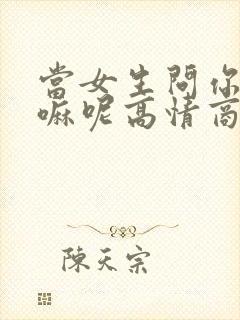 當女生問你
嘛呢高情商
陳天宗